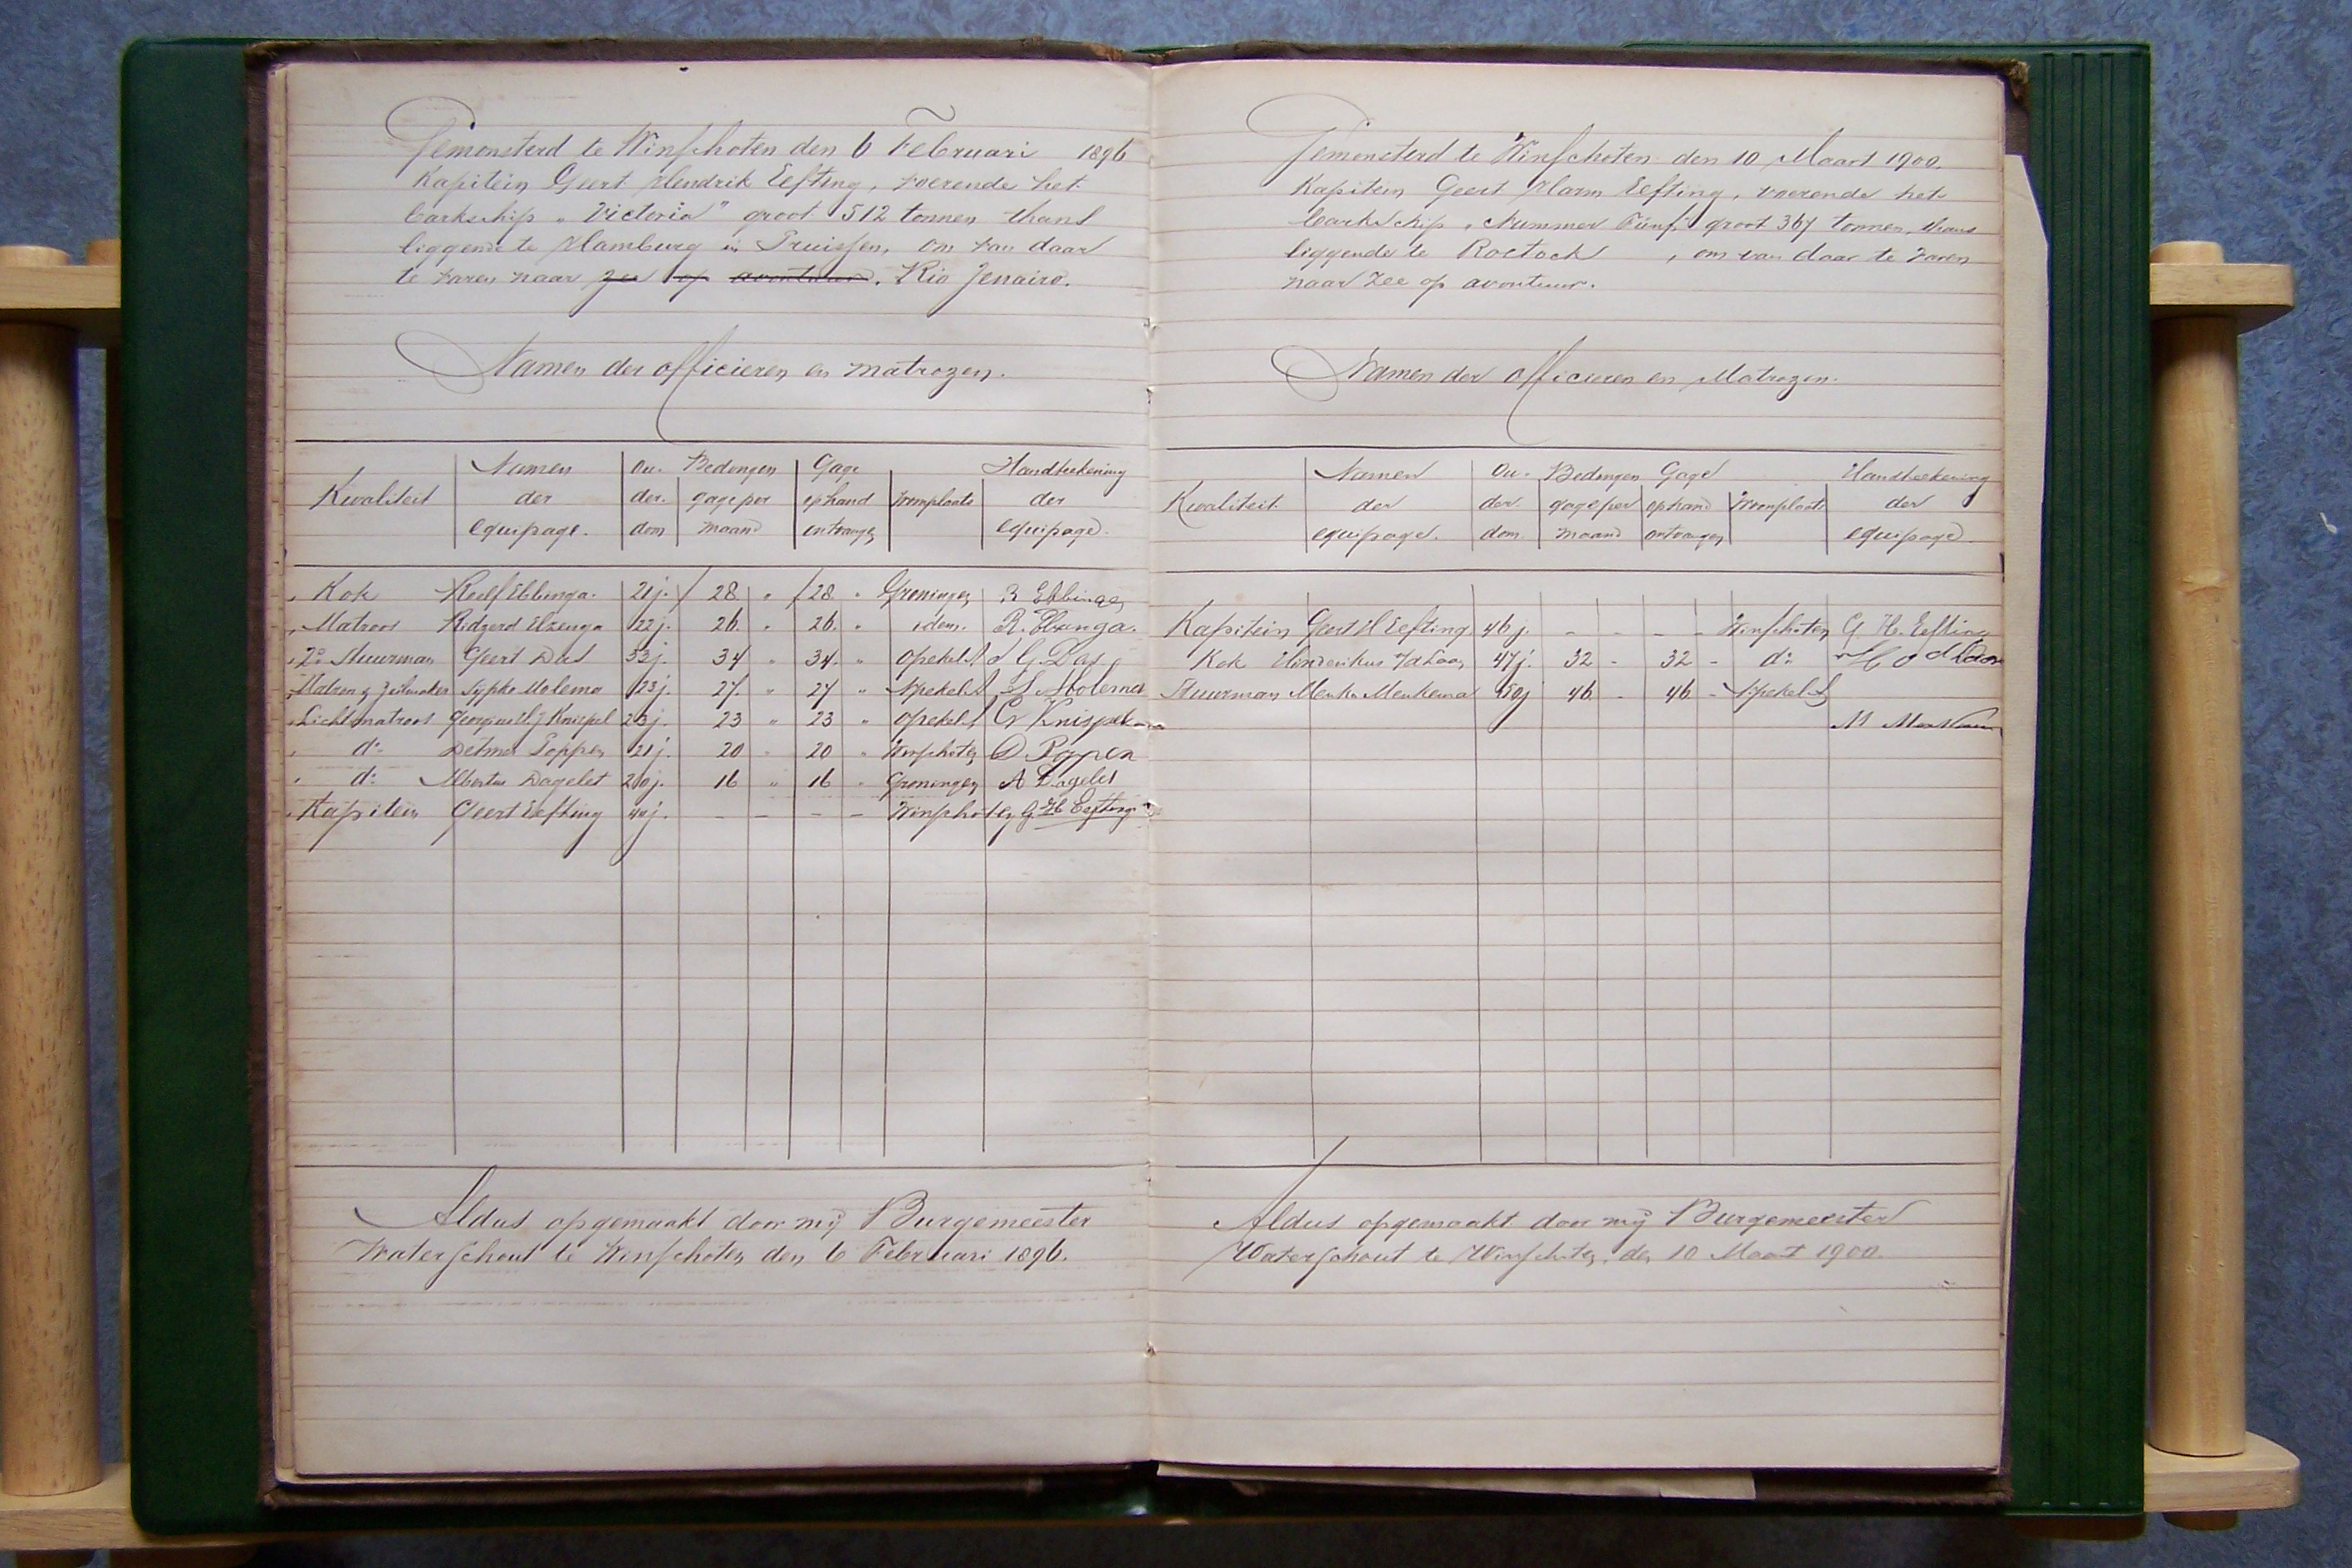 Gemonsterd te Winschoten den 6 Februari 1896
Kapitein Geert Hendrik Eefting, voerende het
barkschip „Victoria" groot 512 tonnen thans
liggende te Hamburg in Pruissen, om van daar
te varen naar zee op avontuur. Rio Jenairo.
Namen der officieren en matrozen.
Kwaliteit
Namen der equipage.
Ouderdom
Bedongen gage per maand
Gage op hand ontvangen
Woonplaats
Handteekening der equipage.
Kok Roelf Ebbinga. 21j. f 28 " f 28 " Groningen R Ebbinga
Matroos Ridzerd Elzenga 22j. 26. " 26. " idem. R. Elzenga.
2e Stuurman Geert Das 53j. 34 " 34. " Opekela G. Das
Matroos & Zeilmaker Sypko Molema 23j. 27. " 27 " Npekela S. Molema
Lichtmatroos 23j. 23 " 23 " Opekela G
do 21j. 20 " 20 " Winschoten D.
do Albertus Dagelet 20j. 16 " 16 " Groningen A Dagelet
Kapitein Geert Eefting 40j. – – – – Winschoten G. H. Eefting
Aldus opgemaakt door mij Burgemeester
Waterschout te Winschoten den 6 Februari 1896.
Gemonsterd te Winschoten den 10 Maart 1900.
Kapitein Geert Harm Eefting, voerende het
barkschip „Nummer Fünf" groot 367 tonnen, thans
liggende te Rostock , om van daar te varen
naar Zee op avontuur.
Namen der officieren en Matrozen.
Kwaliteit.
Namen der equipage.
Ouderdom.
Bedongen gage per maand
Gage op hand ontvangen
Woonplaats
Handteekening der equipage.
Kapitein Geert H Eefting 46 j. – – – – Winschoten G. H. Eefting
Kok Hinderikus 47j. 32 – 32 – do H
Stuurman Menko Menkema 50j 46 – 46 – Npekela
M Menkema
Aldus opgemaakt door mij Burgemeester
Waterschout te Winschoten, den 10 Maart 1900.